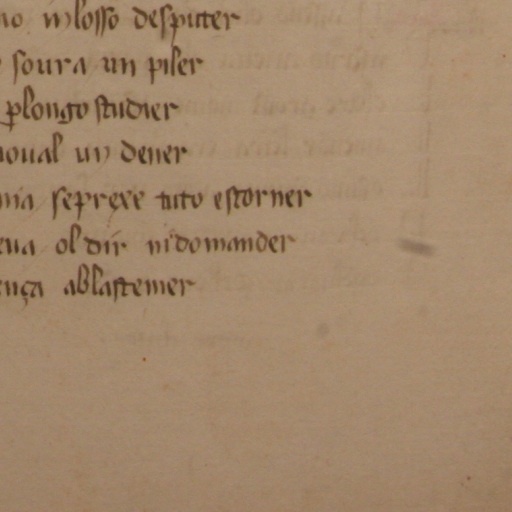 no inlosso desputer
soura un piler
ꝑlongo studier
noual un dener
ma seprexe tuto estorner
eua oldir nidomander
ença ablastemer